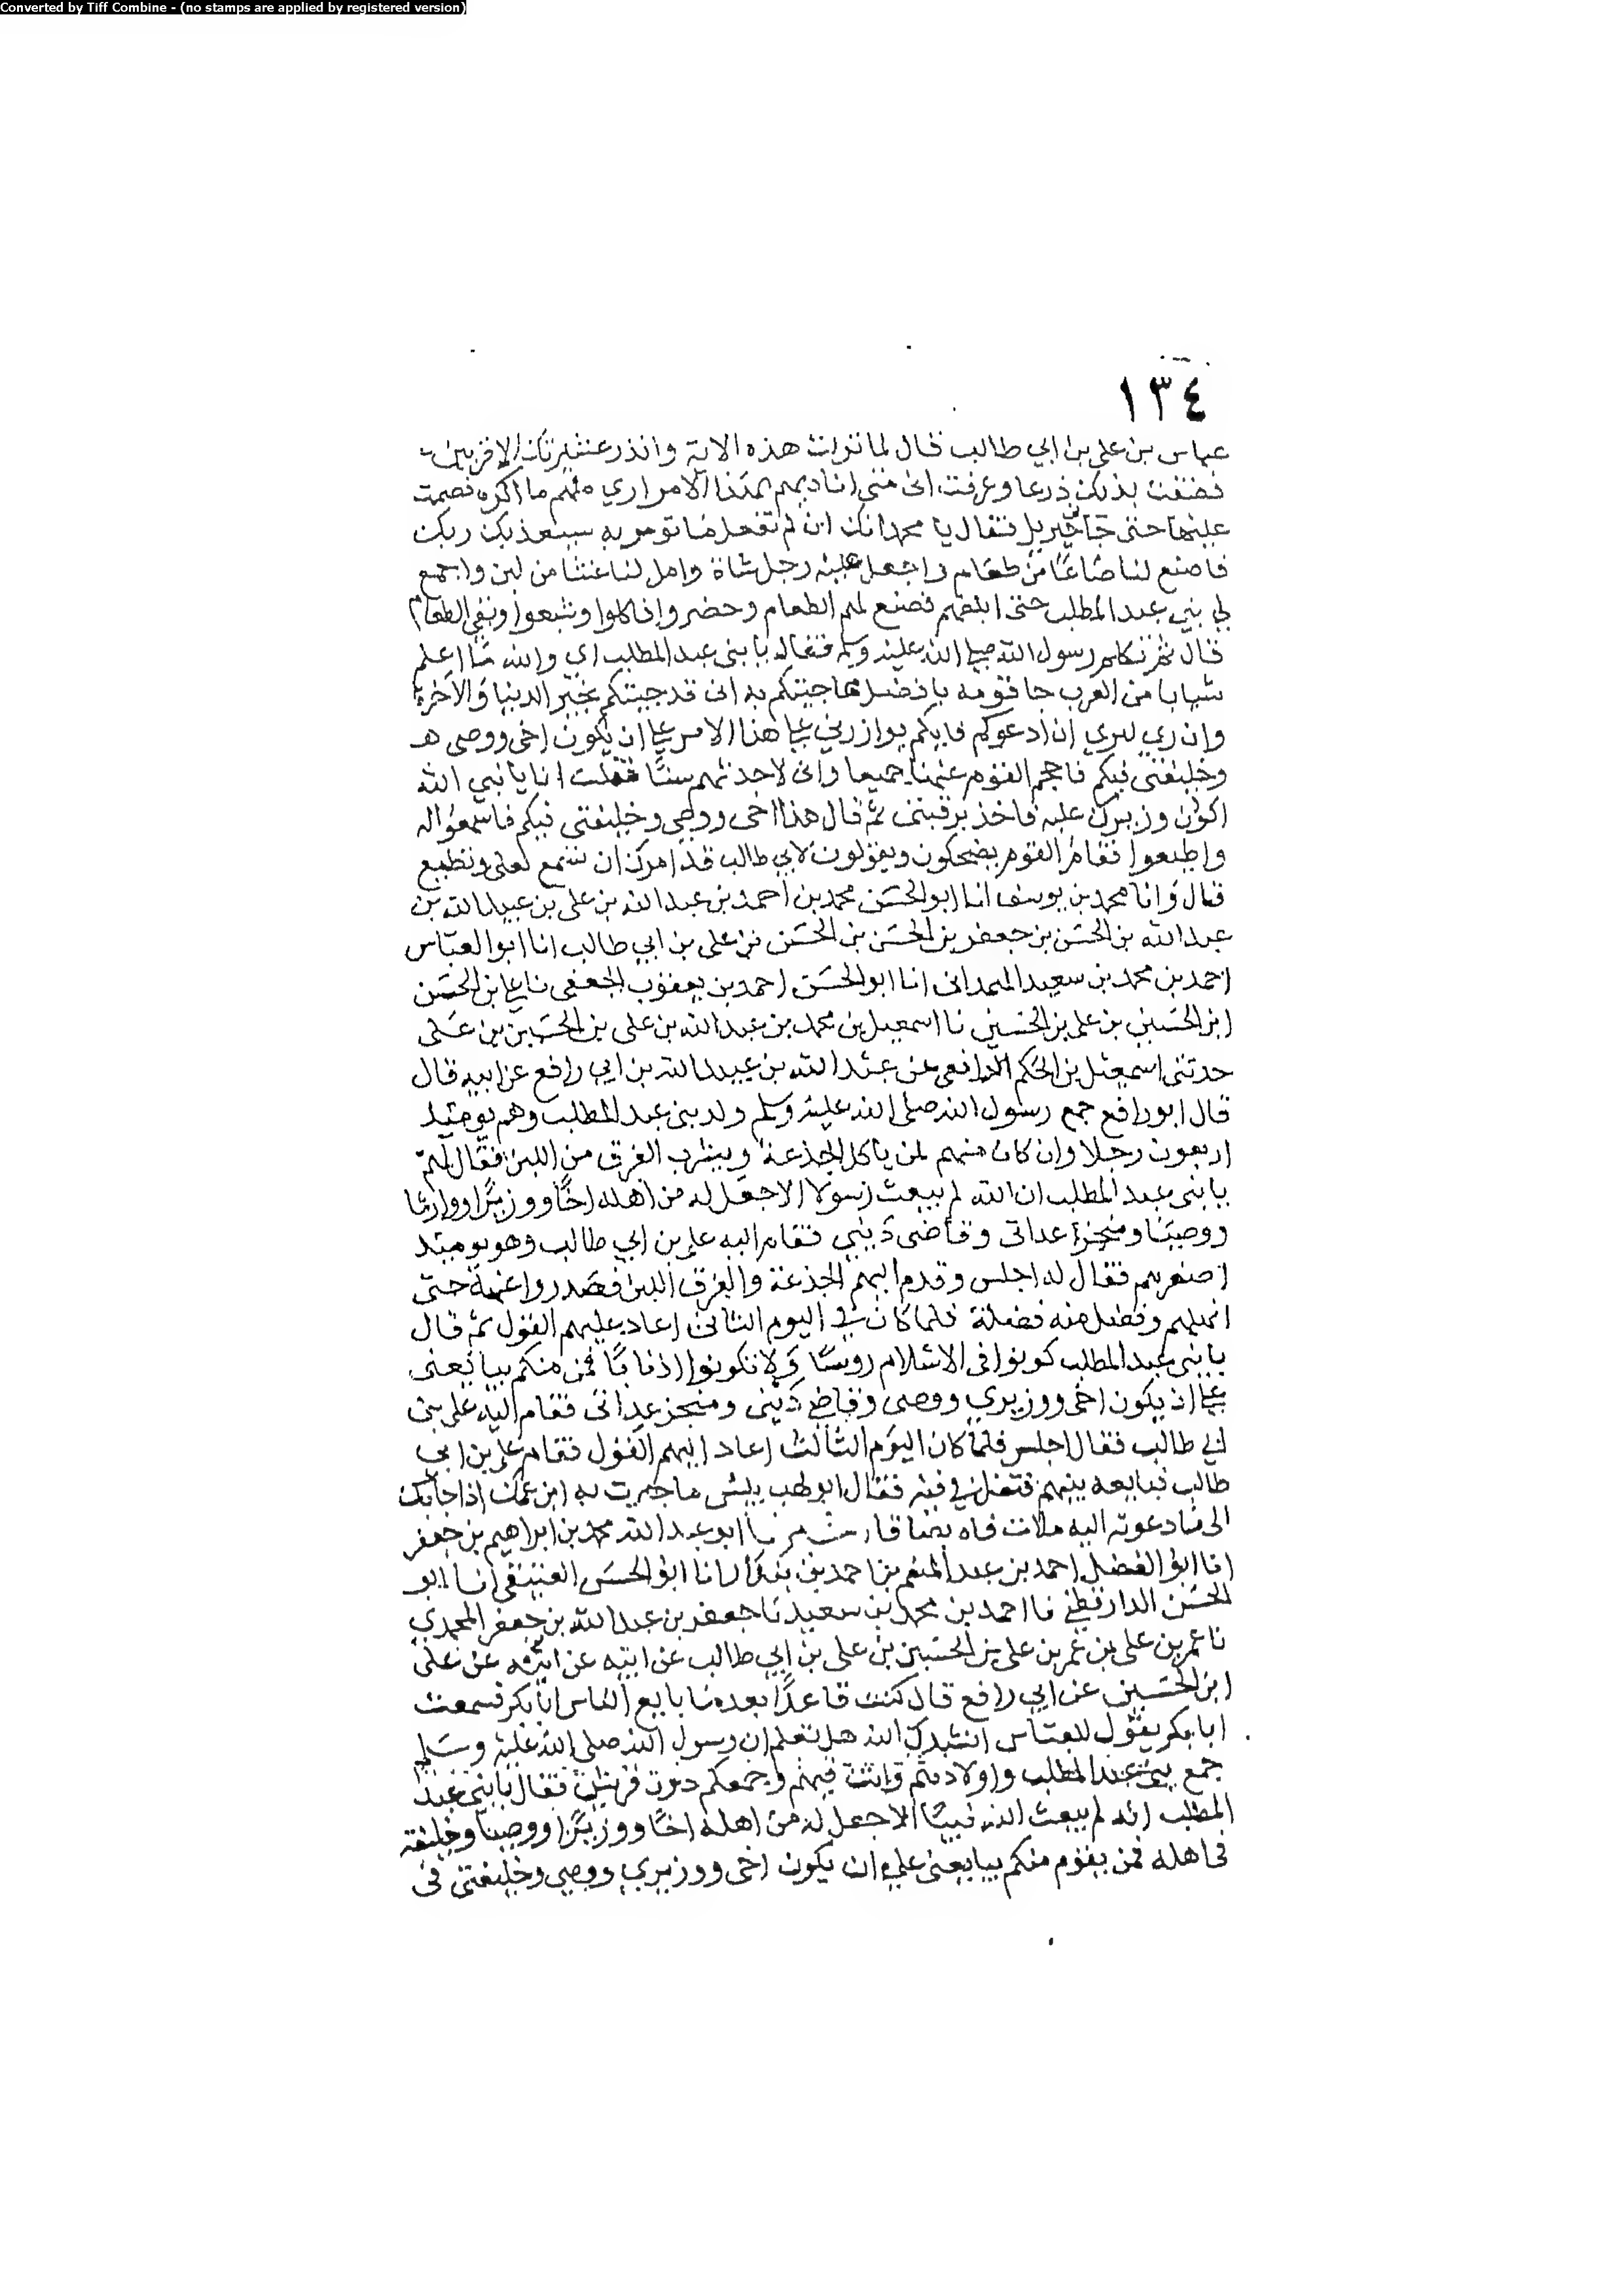 Converted by Tiff Combine - (no stamps are applied by registered version)
١٣٤
عباس بن علي بن ابي طالب قال لما نزلت هذه الاية وانذر عشيرتك الاقربين
فضقت بذلك ذرعا وعرفت انى متى اناديهم بهذا الامر اري منهم ما اكره فصمت
عليها حتى جاني جبريل فقال يا محمد انك ان لم تفعل ما تومر به سيعذبك ربك
فاصنع لنا صاعًا من طعام واجعل عليه رجل شاة واملا لنا عسا من لبن واجمع
لي بني عبد المطلب حتى ابلغهم فصنع لهم الطعام وحضروا فاكلوا وشبعوا وبقي الطعام
قال ثم تكلم رسول الله صلى الله عليه وسلم فقال يا بنى عبد المطلب اي والله ما اعلم
شابا من العرب جا قومه بافضل ما جيتكم به انى قد جيتكم بخير الدنيا والاخرة
وان ربي امرني ان ادعوكم فايكم يوازرني على هذا الامر على ان يكون اخى ووصى
وخليفتى فيكم فاحجم القوم عنها جميعا وانى لاحدثهم سنًا فقلت انا يا نبي الله
اكون وزيرك عليه فاخذ برقبتى ثم قال هذا اخى ووصي وخليفتى فيكم فاسمعوا له
واطيعوا فقام القوم يضحكون ويقولون لابي طالب قد امرك ان تسمع لعلى وتطيع
قال وانا محمد بن يوسف انا ابو الحسن محمد بن احمد بن عبد الله بن على بن عبيد الله بن
عبد الله بن الحسن بن جعفر بن الحسن بن الحسن بن على بن ابي طالب انا ابو العباس
احمد بن محمد بن سعيد الهمدانى انا ابو الحسن احمد بن يعقوب الجعفى نا على بن الحسن
ابن الحسين بن على بن الحسين نا اسمعيل بن محمد بن عبد الله بن على بن الحسين بن على
حدثنى اسمعيل بن الحكم الرافعى عن عبد الله بن عبيد الله بن ابي رافع عن ابيه قال
قال ابو رافع جمع رسول الله صلى الله عليه وسلم ولد بنى عبد المطلب وهم يوميذ
اربعون رجلا وان كان منهم لمن ياكل الجذعة ويشرب الفرق من اللبن فقال لهم
يا بنى عبد المطلب ان الله لم يبعث رسولا الا جعل له من اهله اخًا ووزيرًا ووارثا
ووصيًا ومنجزا عداتى وقاضى ديني فقام اليه على بن ابي طالب وهو يوميذ
اصغرهم فقال له اجلس وقدم اليهم الجذعة والفرق اللبن فصدروا عنه حتى
انهلهم وفضل منه فضلة فلما كان في اليوم الثانى اعاد عليهم القول ثم قال
يا بنى عبد المطلب كونوا فى الاسلام روسًا ولا تكونوا اذنابًا فمن منكم يبايعنى
على ان يكون اخى ووزيري ووصى وقاضي دينى ومنجز عداتى فقام اليه على بن
ابي طالب فقال اجلس فلما كان اليوم الثالث اعاد اليهم القول فقام على بن ابي
طالب فبايعه بينهم فتفل في فيه فقال ابو لهب بيس ما جبرت به ابن عمك اذ اجابك
الى ما دعوته اليه ملات فاه بصاقا ابو عبد الله محمد بن ابراهيم بن جعفر
انا ابو الفضل احمد بن عبد المنعم بن احمد بن بندار انا ابو الحسن العتيقى انا ابو
الحسن الدارقطني نا احمد بن محمد بن سعيد نا جعفر بن عبد الله بن جعفر المحمدي
نا عمر بن على بن عمر بن على بن الحسين بن على بن ابي طالب عن ابيه عن عن على
ابن الحسين عن ابي رافع قال كنت قاعدًا بعد ما بايع الناس ابا بكر فسمعت
ابا بكر يقول للعباس انشدك الله هل تعلم ان رسول الله صلى الله عليه وسلم
جمع بني عبد المطلب واولادهم وانت فيهم وجمعكم دون قريش فقال يا بنى عبد
المطلب انه لم يبعث الله نبيًا الا جعل له من اهله اخًا ووزيرًا ووصيا وخليفة
فى اهله فمن يقوم منكم يبايعنى على ان يكون اخى ووزيري ووصي وخليفتى فى